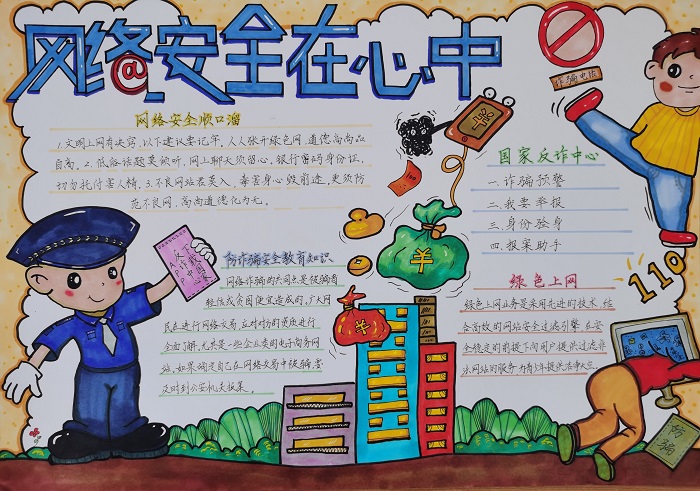 网络安全在心中
@
网络安全顺口溜
1.文明上网有决窍,以下建议要记牢,人人张开绿色网,道德高尚品
自高。2.低俗话题莫倾听,网上聊天须留心,银行密码身份证,
切勿托付害人精。3.不良网站君莫入,毒害身心毁前途,更须防
范不良网,高尚道德化为无。
诈骗电话
国家反诈中心
一.诈骗预警
二.我要举报
三.身份验身
四.报案助手
110
下载国家
反诈中心
APP
防诈骗安全教育知识
网络诈骗的共同点是被骗者
轻信或贪图便宜造成的,广大网
民在进行网络交易,应对对方的资质进行
全面了解,尤其是一些企业类的电子商务网
站,如果确定自己在网络交易中被骗,要
及时到公安机关报案。
绿色上网
绿色上网业务是采用先进的技术,结
合有效的网站安全过滤引擎,在安
全稳定的前提下向用户提供过滤非
法网站的服务,为青少年提供洁净天空。
防骗